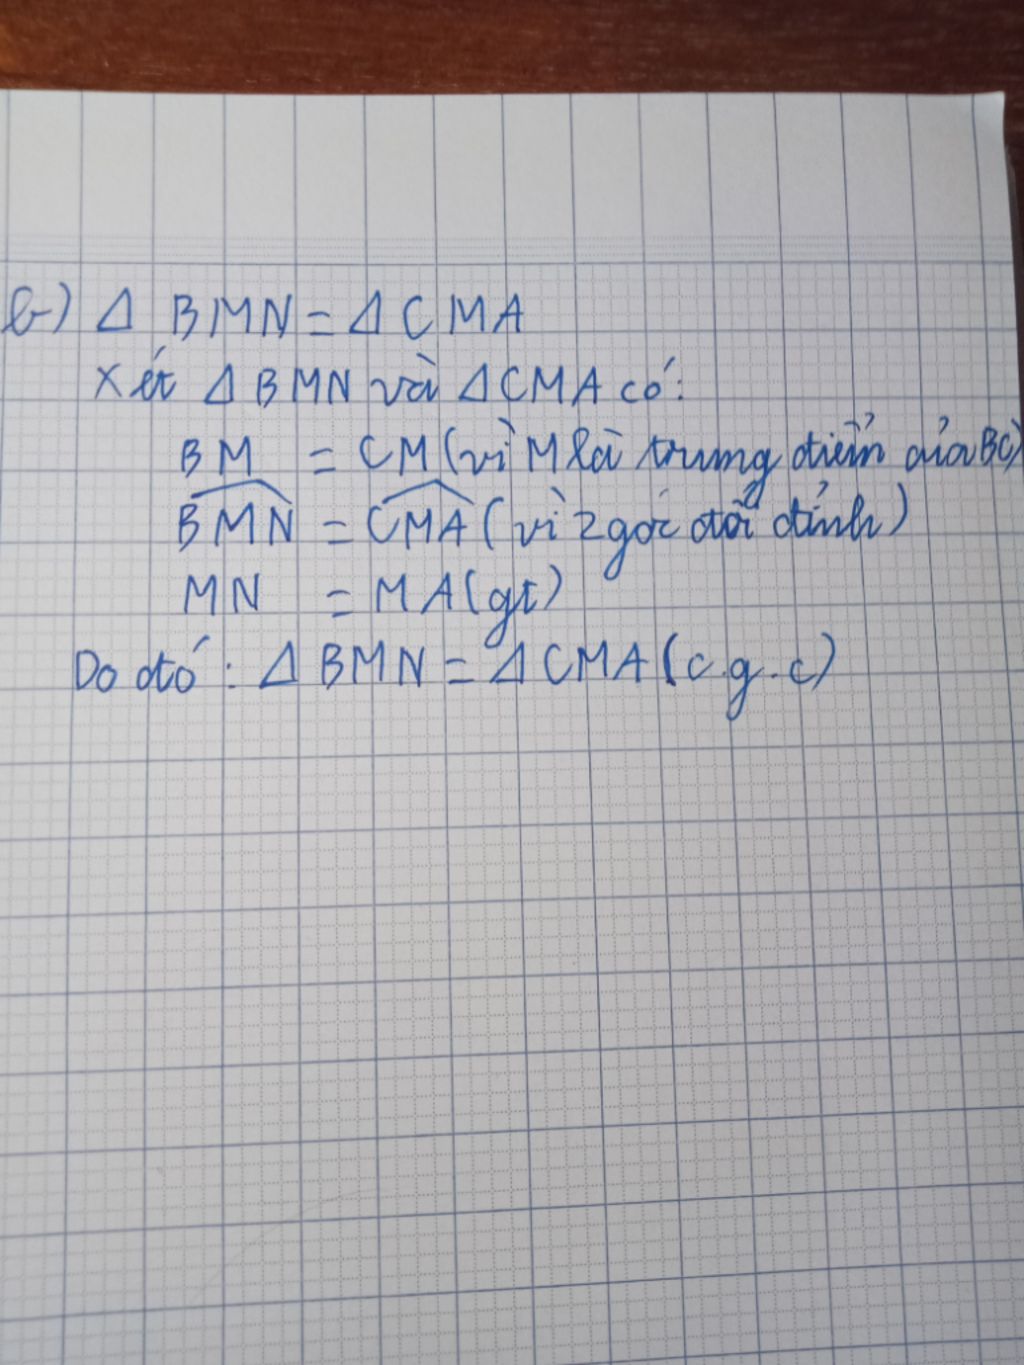 b) Δ BMN = Δ CMA
Xét Δ BMN và Δ CMA có:
BM = CM (vì M là trung điểm của BC)
BMN = CMA (vì 2 góc đối đỉnh)
MN = MA (gt)
Do đó: Δ BMN = Δ CMA (c.g.c)